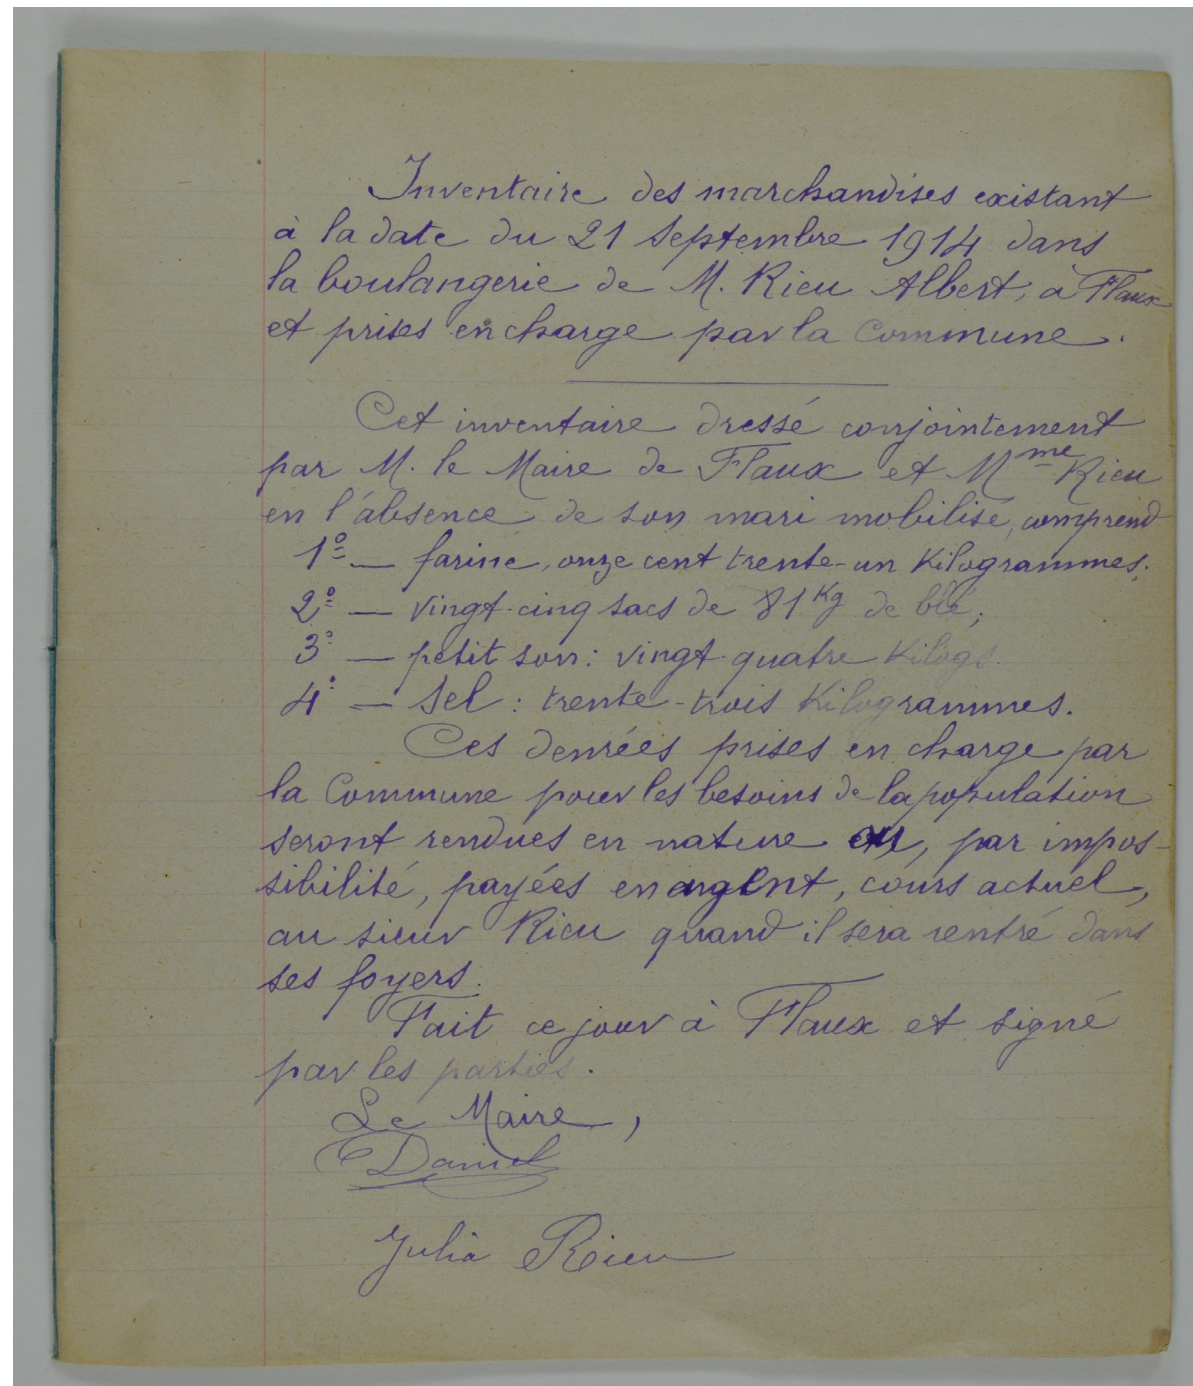 Inventaire des marchandises existant
à la date du 21 Septembre 1914 dans
la boulangerie de M. Rieu Albert, à Flaux
et prises en charge par la Commune.
Cet inventaire dressé conjointement
par M. le Maire de Flaux et Mme Rieu
en l'absence de son mari mobilisé, comprend
1º — farine, onze cent trente-un Kilogrammes;
2º — vingt-cinq sacs de 81 Kg de blé;
3º — petit son: vingt-quatre Kilogs.
4º — Sel: trente-trois Kilogrammes.
Ces denrées prises en charge par
la Commune pour les besoins de la population
seront rendues en nature ou, par impos-
sibilité, payées en argent, cours actuel,
au sieur Rieu quand il sera rentré dans
ses foyers.
Fait ce jour à Flaux et signé
par les parties.
Le Maire,
Daniel
Julia Rieu